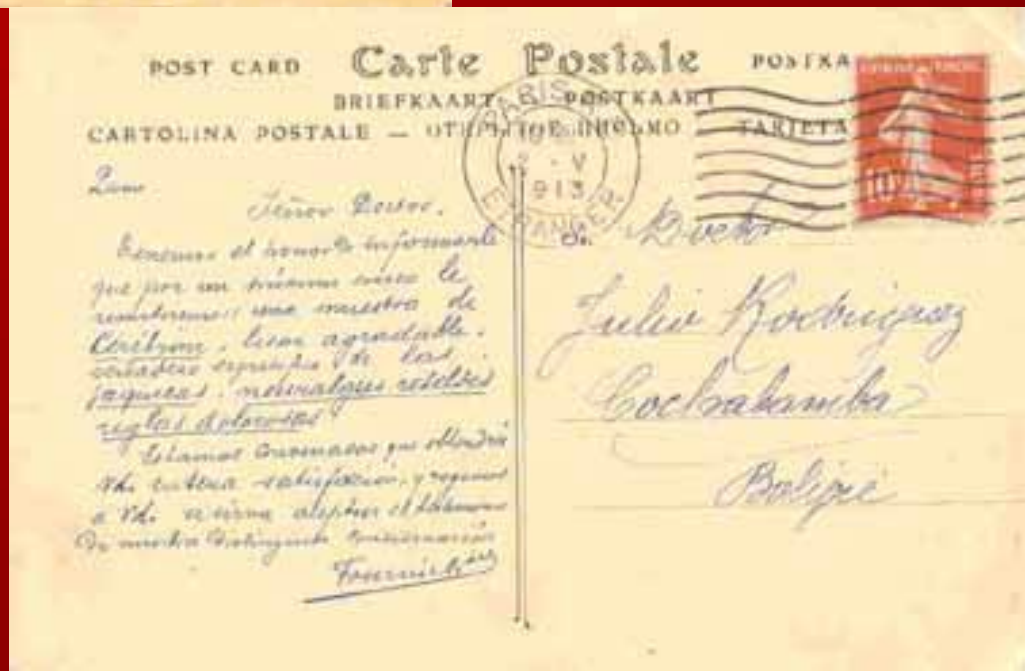 POST CARD Carte Postale POSTKA
BRIEFKAART POSTKAART
CARTOLINA POSTALE — ОТКРЫТОЕ ПИСЬМО TARJETA
PARIS
2 - V
913
ETRANGER
10
Señor Doctor.
Tenemos el honor de informarle
que por un mismo correo le
remitiremos una muestra de
licor agradable.
verdadero específico de las
jaquecas, neuralgias rebeldes
reglas dolorosas
Estamos que obtendrá
Vd. entera satisfacción, y rogamos
a Vd. se sirva aceptar el
De nuestra distinguida consideración
Doctor
Julio Rodriguez
Cochabamba